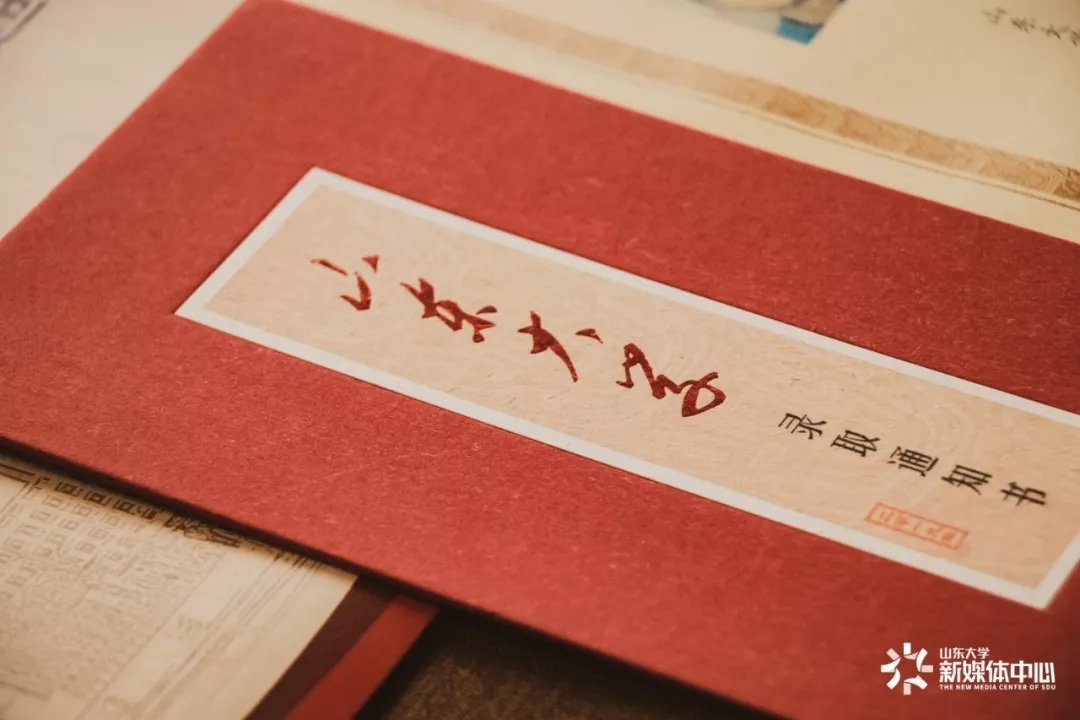 山东大学
录取通知书
山东大学
山东大学
新媒体中心
THE NEW MEDIA CENTER OF SDU